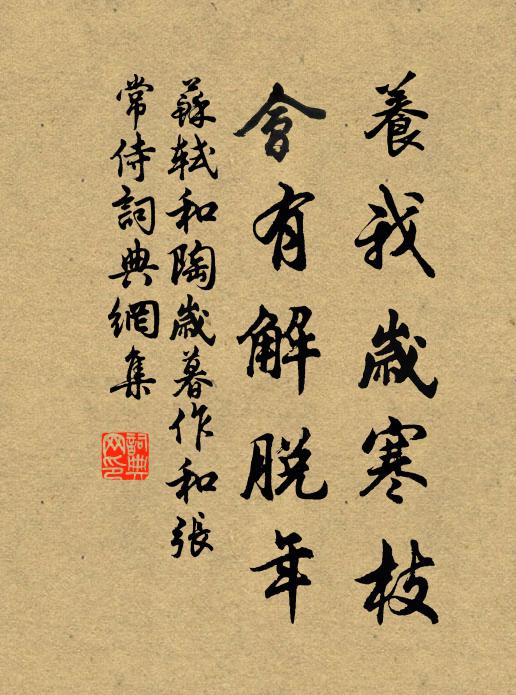 養我歲寒枝
會有解脫年
蘇軾和陶歲暮作和張
常侍詞典網集
詞典
网印